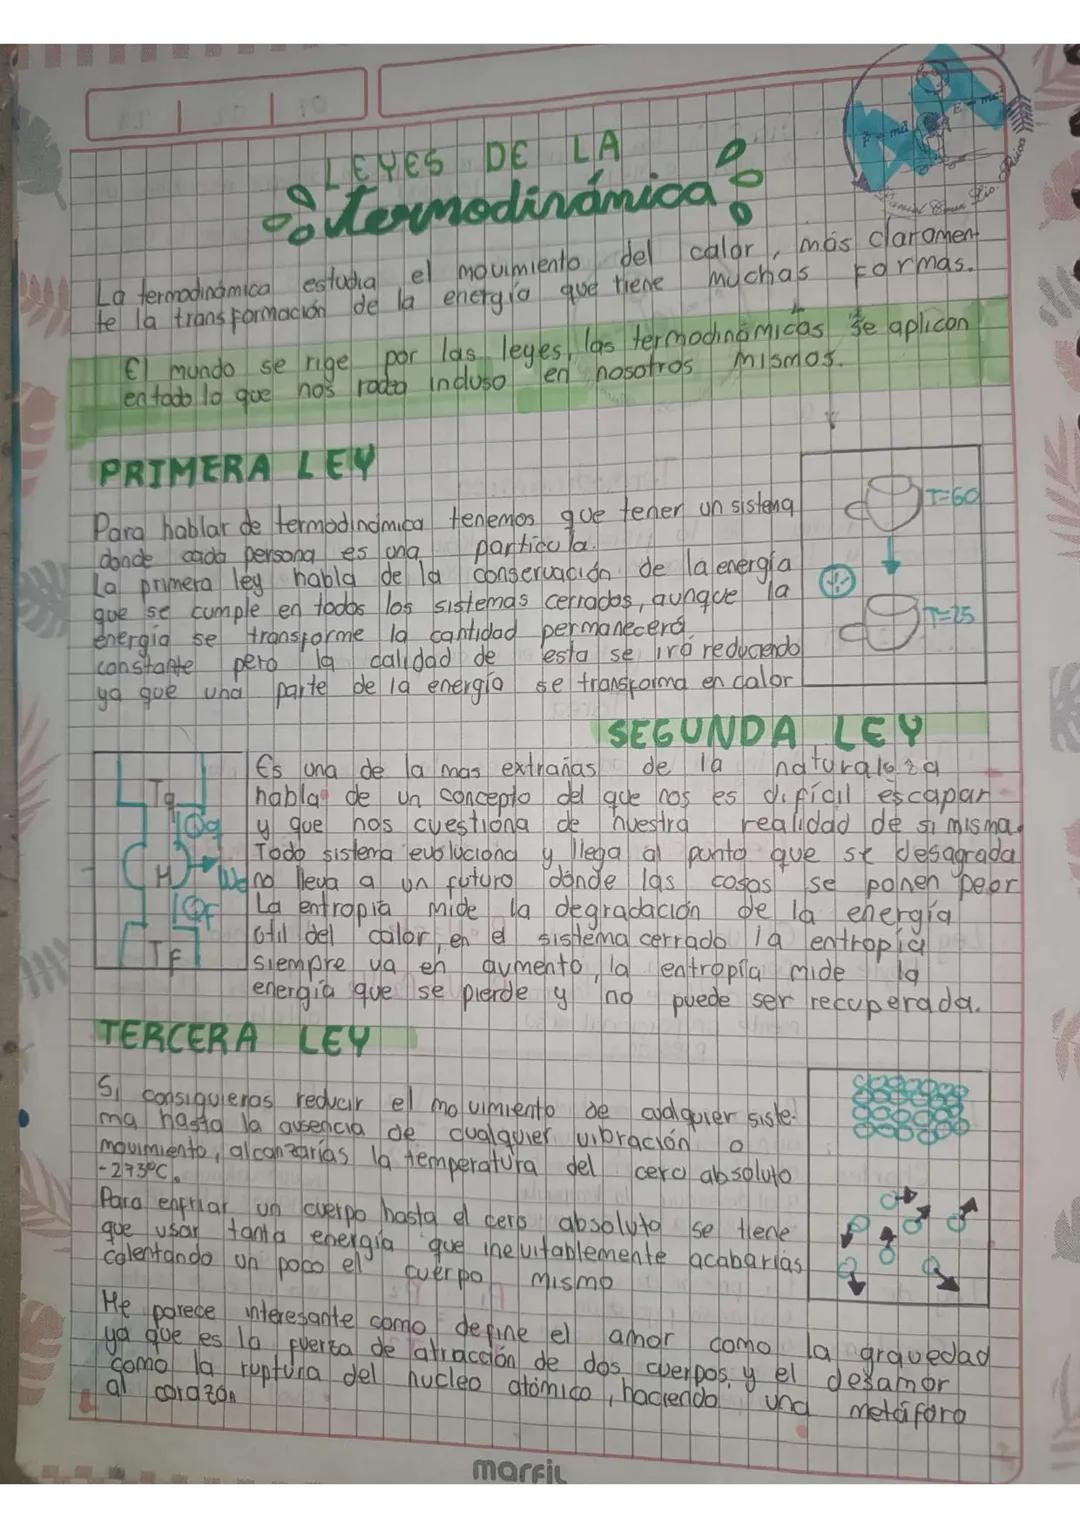 LEYES DE LA
termodinámica
La termodinámica estudia el movimiento del calor, más clarament
te la transformación de la energía que tiene muchas formas.
El mundo se rige por las leyes, las termodinámicas se aplican
en todo lo que nos rodea incluso en nosotros mismos.
PRIMERA LEY
Para hablar de termodinámica tenemos que tener un sistema
donde cada persona es una partícula.
La primera ley habla de la conservación de la energía
que se cumple en todos los sistemas cerrados, aunque la
energía se transforme la cantidad permanecerá
constante pero la calidad de esta se irá reduciendo
ya que una parte de la energía se transforma en calor
T=60
T=25
SEGUNDA LEY
Es una de la mas extrañas de la naturaleza
habla de un concepto del que nos es difícil escapar
y que nos cuestiona de nuestra realidad de si misma.
Todo sistema evoluciona y llega al punto que se desagrada
no lleva a un futuro donde las cosas se ponen peor
La entropía mide la degradación de la energía
útil del calor, en el sistema cerrado la entropía
siempre va en aumento, la entropía mide la
energía que se pierde y no puede ser recuperada.
Tq
Qq
M
Qf
TF
TERCERA LEY
Si consiguieras reducir el movimiento de cualquier siste-
ma hasta la ausencia de cualquier vibración o
movimiento, alcanzarías la temperatura del cero absoluto
-273°C.
Para enfriar un cuerpo hasta el cero absoluto se tiene
que usar tanta energía que inevitablemente acabarías
calentando un poco el cuerpo mismo
Me parece interesante como define el amor como la gravedad
ya que es la fuerza de atracción de dos cuerpos, y el desamor
como la ruptura del nucleo atómico, haciendo una metáfora
al corazón
marfil